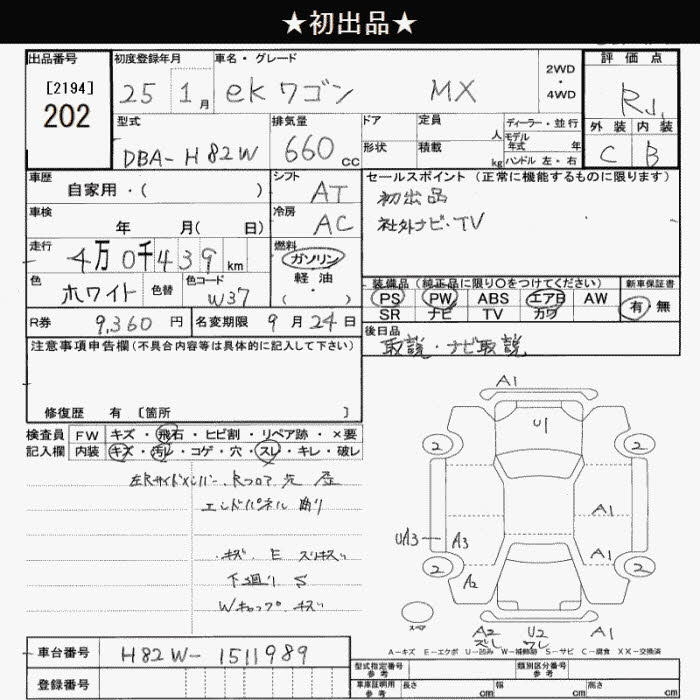 ★初出品★
出品番号 初度登録年月 車名・グレード 評価点
[2194]
202
25 1月 ekワゴン MX 2WD・4WD R
型式 排気量 ドア 定員 人 ディーラー・並行
モデル年式 年
外装 内装
DBA-H82W 660cc 形状 積載 kg ハンドル 左・右 C B
車歴 シフト セールスポイント(正常に機能するものに限ります)
自家用・( ) AT 初出品
車検 冷房 社外ナビ・TV
年 月( 日) AC
走行 燃料
4万0千439km ガソリン
色 色替 色コード 軽油
ホワイト W37 ( ・ )
装備品(純正品に限り○をつけてください) 新車保証書
PS PW ABS エアB AW 有・無
SR ナビ TV カワ
R券 9,360円 名変期限 9月24日
後日品
取説・ナビ取説
注意事項申告欄(不具合内容等は具体的に記入して下さい)
修復歴 有 〔箇所 〕
検査員 FW キズ・飛石・ヒビ割・リペア跡・×要
記入欄 内装 キズ・汚レ・コゲ・穴・スレ・キレ・破レ
左Rサイドメンバー、Rフロア先
エンドパネル曲り
・キズ E スリキズ
下廻り S
Wキャップ キズ
A1
U1
2 2
A1
UA3 A3
A1
2 2
A2
スペア
A2 U2 A1
A-キズ E-エクボ U-凹み W-補修跡 S-サビ C-腐食 XX-交換済
車台番号 H82W-1511989
登録番号
型式指定番号 参考 類別区分番号 参考
車庫証明用 参考 長さ cm 幅 cm 高さ cm